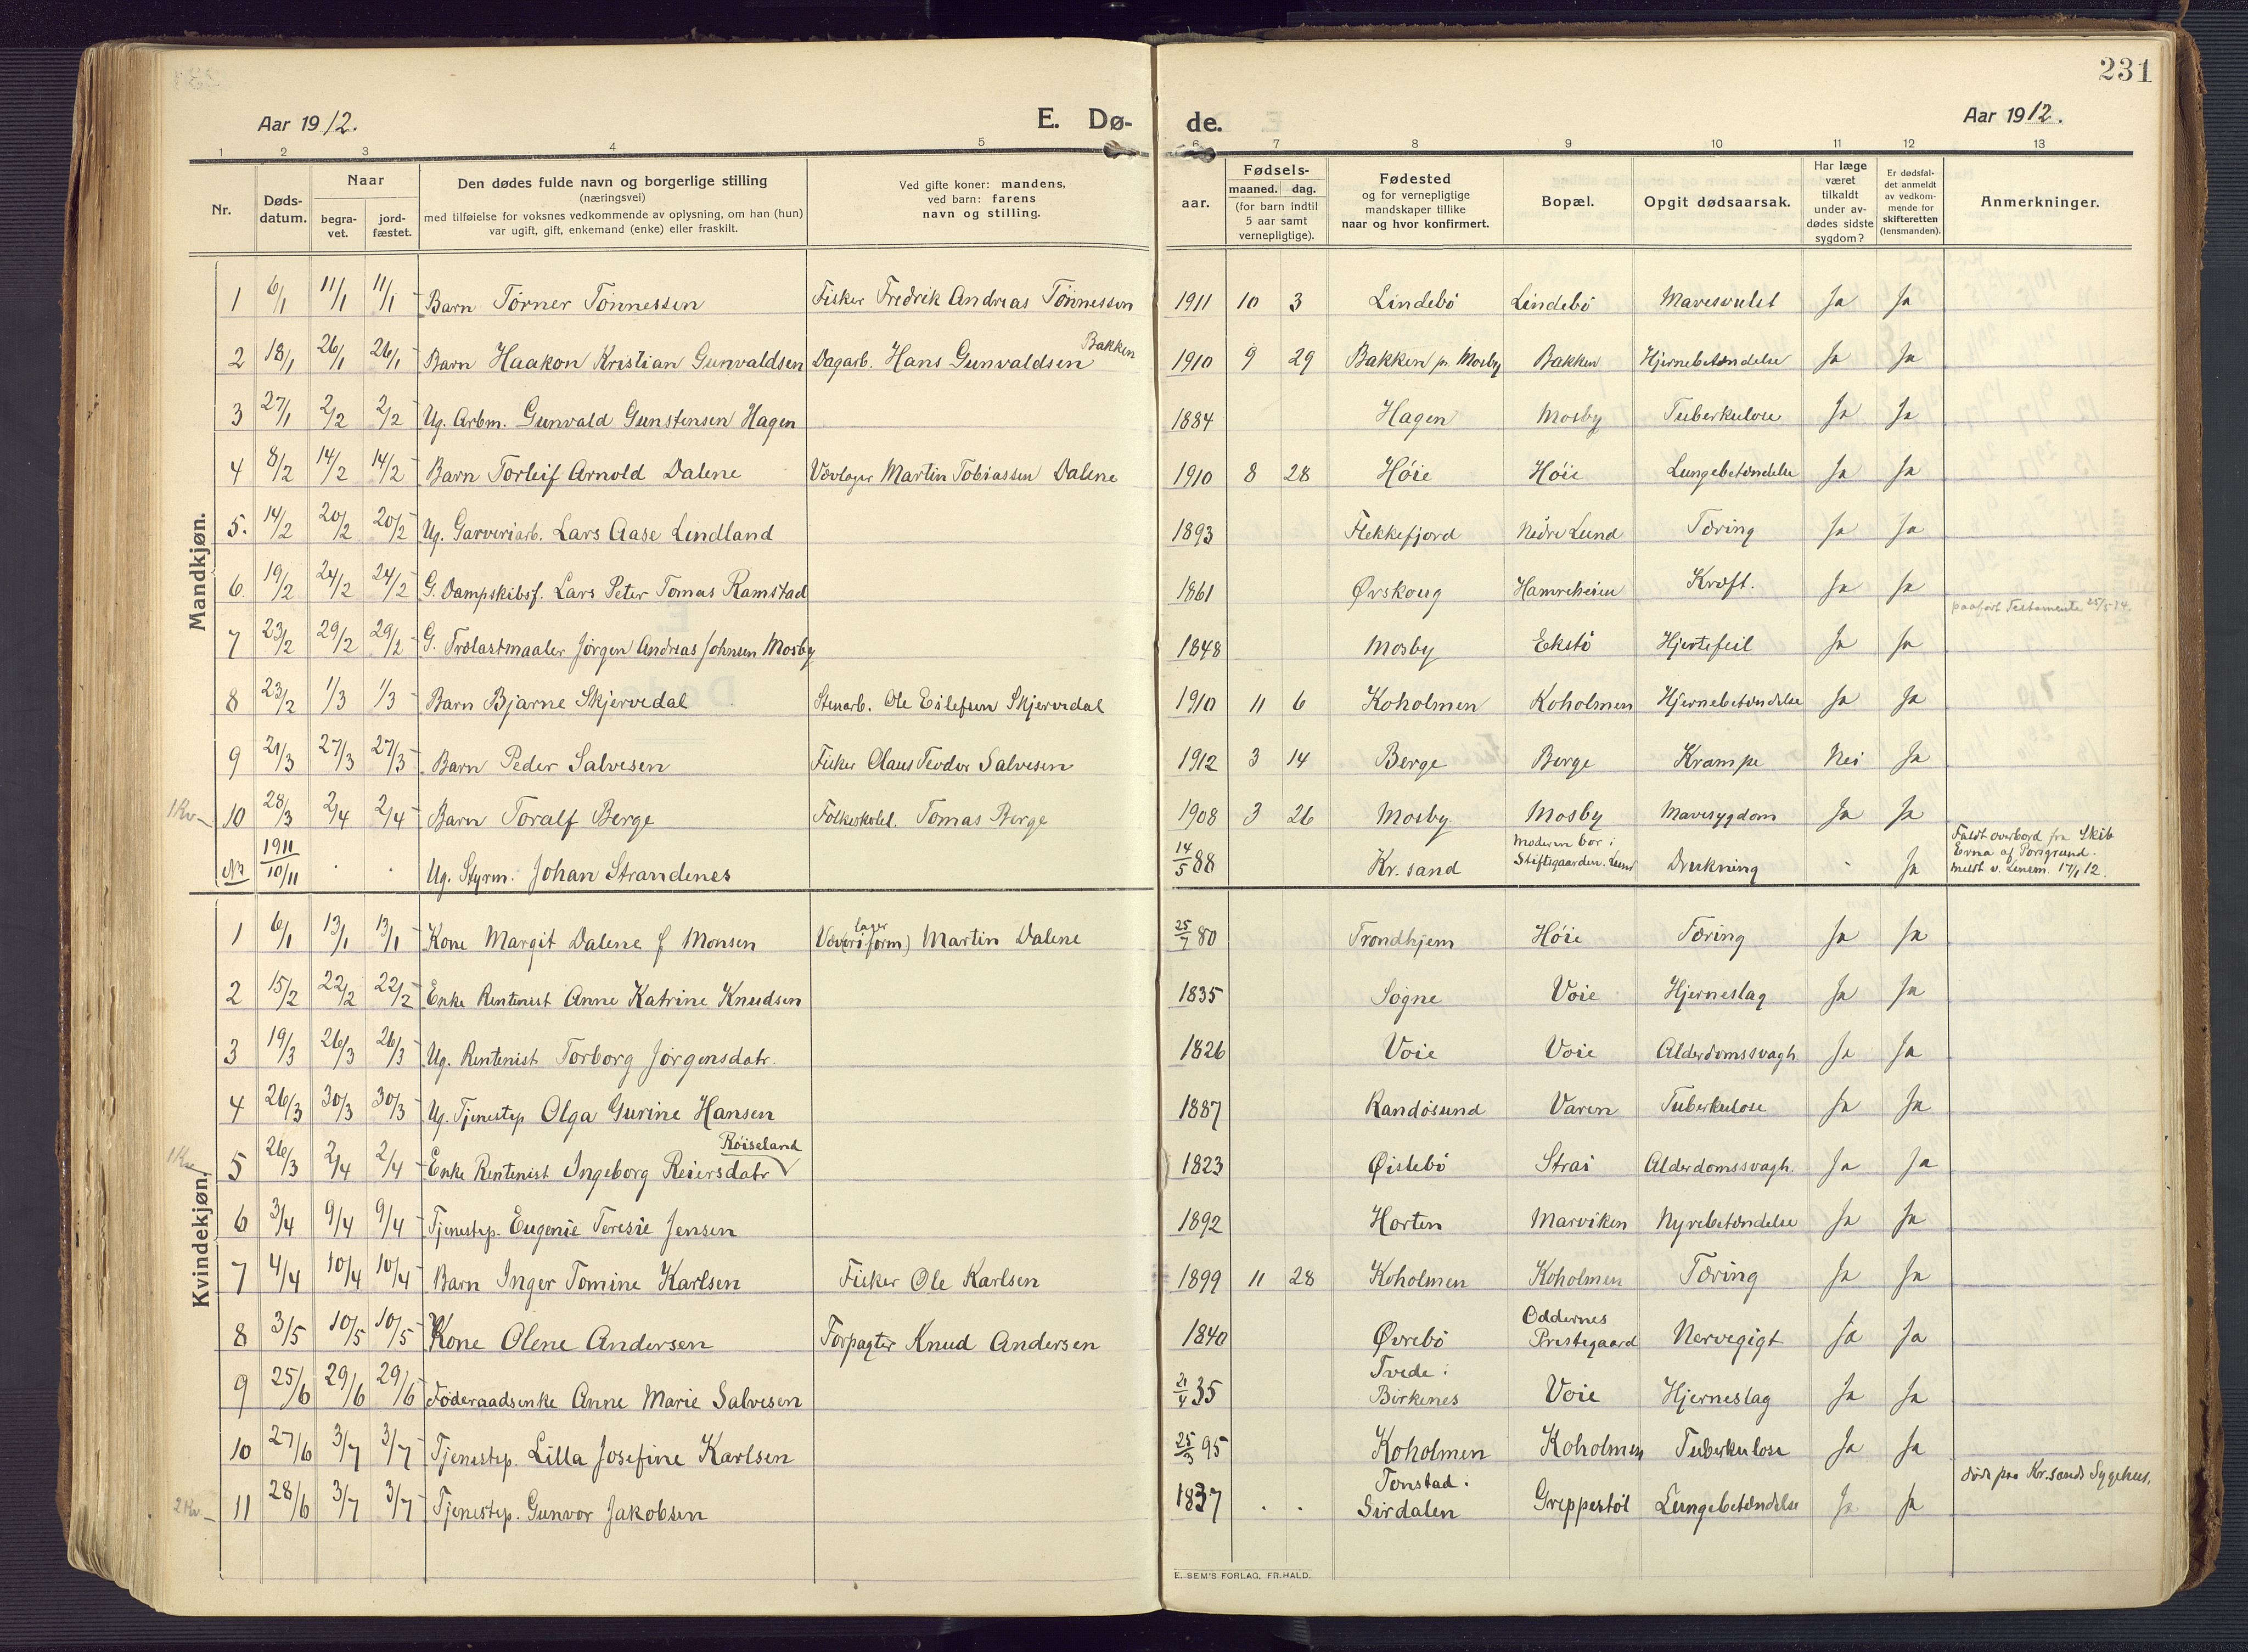 231
Aar 1912. E. Dø- de. Aar 1912.
1 2 3 4 5 6 7 8 9 10 11 12 13
Nr.
Døds-
datum.
Naar
begra-
vet.
jord-
fæstet.
Den dødes fulde navn og borgerlige stilling
(næringsvei)
med tilføielse for voksnes vedkommende av oplysning, om han (hun)
var ugift, gift, enkemand (enke) eller fraskilt.
Ved gifte koner: mandens,
ved barn: farens
navn og stilling.
aar.
Fødsels-
maaned. dag.
(for barn indtil
5 aar samt
vernepligtige).
Fødested
og for vernepligtige
mandskaper tillike
naar og hvor konfirmert.
Bopæl.
Opgit dødsaarsak.
Har læge
været
tilkaldt
under av-
dødes sidste
sygdom?
Er dødsfal-
det anmeldt
av vedkom-
mende for
skifteretten
(lensmanden).
Anmerkninger.
Mandkjøn.
1 6/1 11/1 11/1 Barn Törner Tönnessen Fisker Fredrik Andreas Tönnessen 1911 10 3 Lindebö Lindebö Mavesvulst Ja Ja
Bakken
2 18/1 26/1 26/1 Barn Haakon Kristian Gunvaldsen Dagarb. Hans Gunvaldsen 1910 9 29 Bakken pr. Mosby Bakken Hjernebetændelse Ja Ja
3 27/1 2/2 2/2 Ug. Arbm. Gunvald Gunstensen Hagen 1884 Hagen Mosby Tuberkulose Ja Ja
4 8/2 14/2 14/2 Barn Torleif Arnold Dalene Vævlager Martin Tobiassen Dalene 1910 8 28 Höie Höie Lungebetændelse Ja Ja
5. 14/2 20/2 20/2 Ug. Garveriarb. Lars Aase Lindland 1893 Flekkefjord Nedre Lund Tæring Ja Ja
6 19/2 24/2 24/2 G. Dampskibsf. Lars Peter Tomas Ramstad 1861 Ørskoug Hamreheien Kræft. Ja Ja
7 23/2 29/2 29/2 G. Trælastmaaler Jörgen Andreas Johnsen Mosby 1848 Mosby Ekstö Hjertefeil Ja Ja
8 23/2 1/3 1/3 Barn Bjarne Skjervedal Stenarb. Ole Eilefsen Skjervedal 1910 11 6 Koholmen Koholmen Hjernebetændelse Ja Ja
9 21/3 27/3 27/3 Barn Peder Salvesen Fisker Olaus Teodor Salvesen 1912 3 14 Berge Berge Krampe Nei Ja
10 28/3 2/4 2/4 Barn Toralf Berge Folkeskolel. Tomas Berge 1908 3 26 Mosby Mosby Mavesygdom Ja Ja
NB 1911 10/11 Ug. Styrm. Johan Strandenes 14/5 88 Kr.sand Moderen bor i
Stiftsgaarden. Lund Drukning - Ja Faldt overbord fra Skib
Erna af Porsgrund.
meldt v. Lensm. 17/1 12.
Kvindekjøn.
1 6/1 13/1 13/1 Kone Margit Dalene f Monsen Væv(eriform) lager Martin Dalene 25/7 80 Trondhjem Höie Tæring Ja Ja
2 15/2 22/2 22/2 Enke Rentenist Anne Katrine Knudsen 1835 Søgne Voie Hjerneslag Ja Ja
3 19/3 26/3 26/3 Ug. Rentenist Torborg Jörgensdatr. 1826 Voie Voie Alderdomssvagh Ja Ja
4 26/3 30/3 30/3 Ug. Tjenestep Olga Gurine Hansen 1887 Randösund Varen Tuberkulose Ja Ja
Röiseland
5 26/3 2/4 2/4 Enke Rentenist Ingeborg Reiersdatr 1823 Øislebö Strai Alderdomssvagh. Ja Ja
6 3/4 9/4 9/4 Tjenestep. Eugenie Teresie Jensen 1892 Horten Marviken Nyrebetændelse Ja Ja
7 4/4 10/4 10/4 Barn Inger Tomine Karlsen Fisker Ole Karlsen 1899 11 28 Koholmen Koholmen Tæring Ja Ja
8 3/5 10/5 10/5 Kone Olene Andersen Forpagter Knud Andersen 1840 Øvrebö Oddernes
Prestegaard Nervegigt Ja Ja
9 25/6 29/6 29/6 Föderaadsenke Anne Marie Salvesen 21/4 35 Tvede i
Birkenes Voie Hjerneslag Ja Ja
10 27/6 3/7 3/7 Tjenestep. Lilla Josefine Karlsen 25/3 95 Koholmen Koholmen Tuberkulose Ja Ja
11 28/6 3/7 3/7 Tjenestep. Gunvor Jakobsen 1837 . . Tonstad i
Sirdalen Greppestöl Lungebetændelse Ja Ja död paa Kr.sands Sygehus.
E. SEM'S FORLAG, FR.HALD.